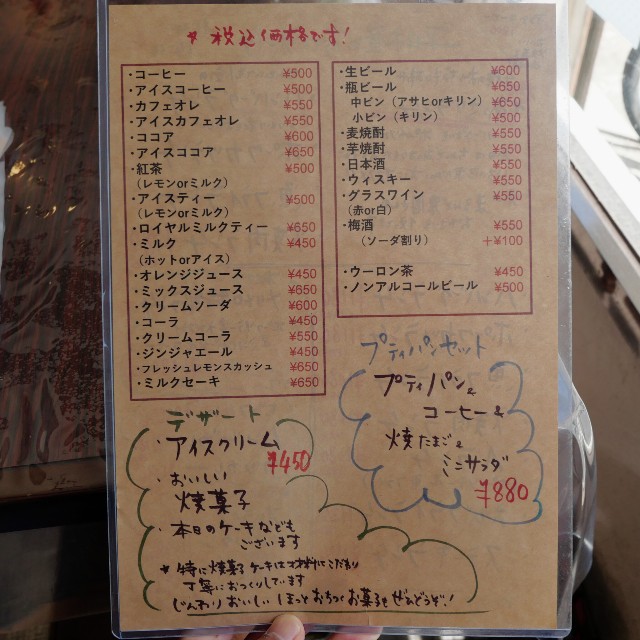 * 税込価格です!
・コーヒー ¥500
・アイスコーヒー ¥500
・カフェオレ ¥550
・アイスカフェオレ ¥550
・ココア ¥600
・アイスココア ¥650
・紅茶 ¥500
(レモンorミルク)
・アイスティー ¥500
(レモンorミルク)
・ロイヤルミルクティー ¥650
・ミルク ¥450
(ホットorアイス)
・オレンジジュース ¥450
・ミックスジュース ¥650
・クリームソーダ ¥600
・コーラ ¥450
・クリームコーラ ¥550
・ジンジャエール ¥450
・フレッシュレモンスカッシュ ¥650
・ミルクセーキ ¥650
・生ビール ¥600
・瓶ビール ¥650
中ビン(アサヒorキリン) ¥650
小ビン(キリン) ¥500
・麦焼酎 ¥550
・芋焼酎 ¥550
・日本酒 ¥550
・ウィスキー ¥550
・グラスワイン ¥550
(赤or白)
・梅酒 ¥550
(ソーダ割り) +¥100
・ウーロン茶 ¥450
・ノンアルコールビール ¥500
デザート
・アイスクリーム
¥450
・おいしい
焼菓子
・本日のケーキなども
ございます
* 特に焼菓子、ケーキは材料にこだわり
丁寧におつくりしています
じんわりおいしい ほっとおちつくお菓子をぜひどうぞ!
プティパンセット
プティパン&
コーヒー&
焼たまご&
ミニサラダ
¥880